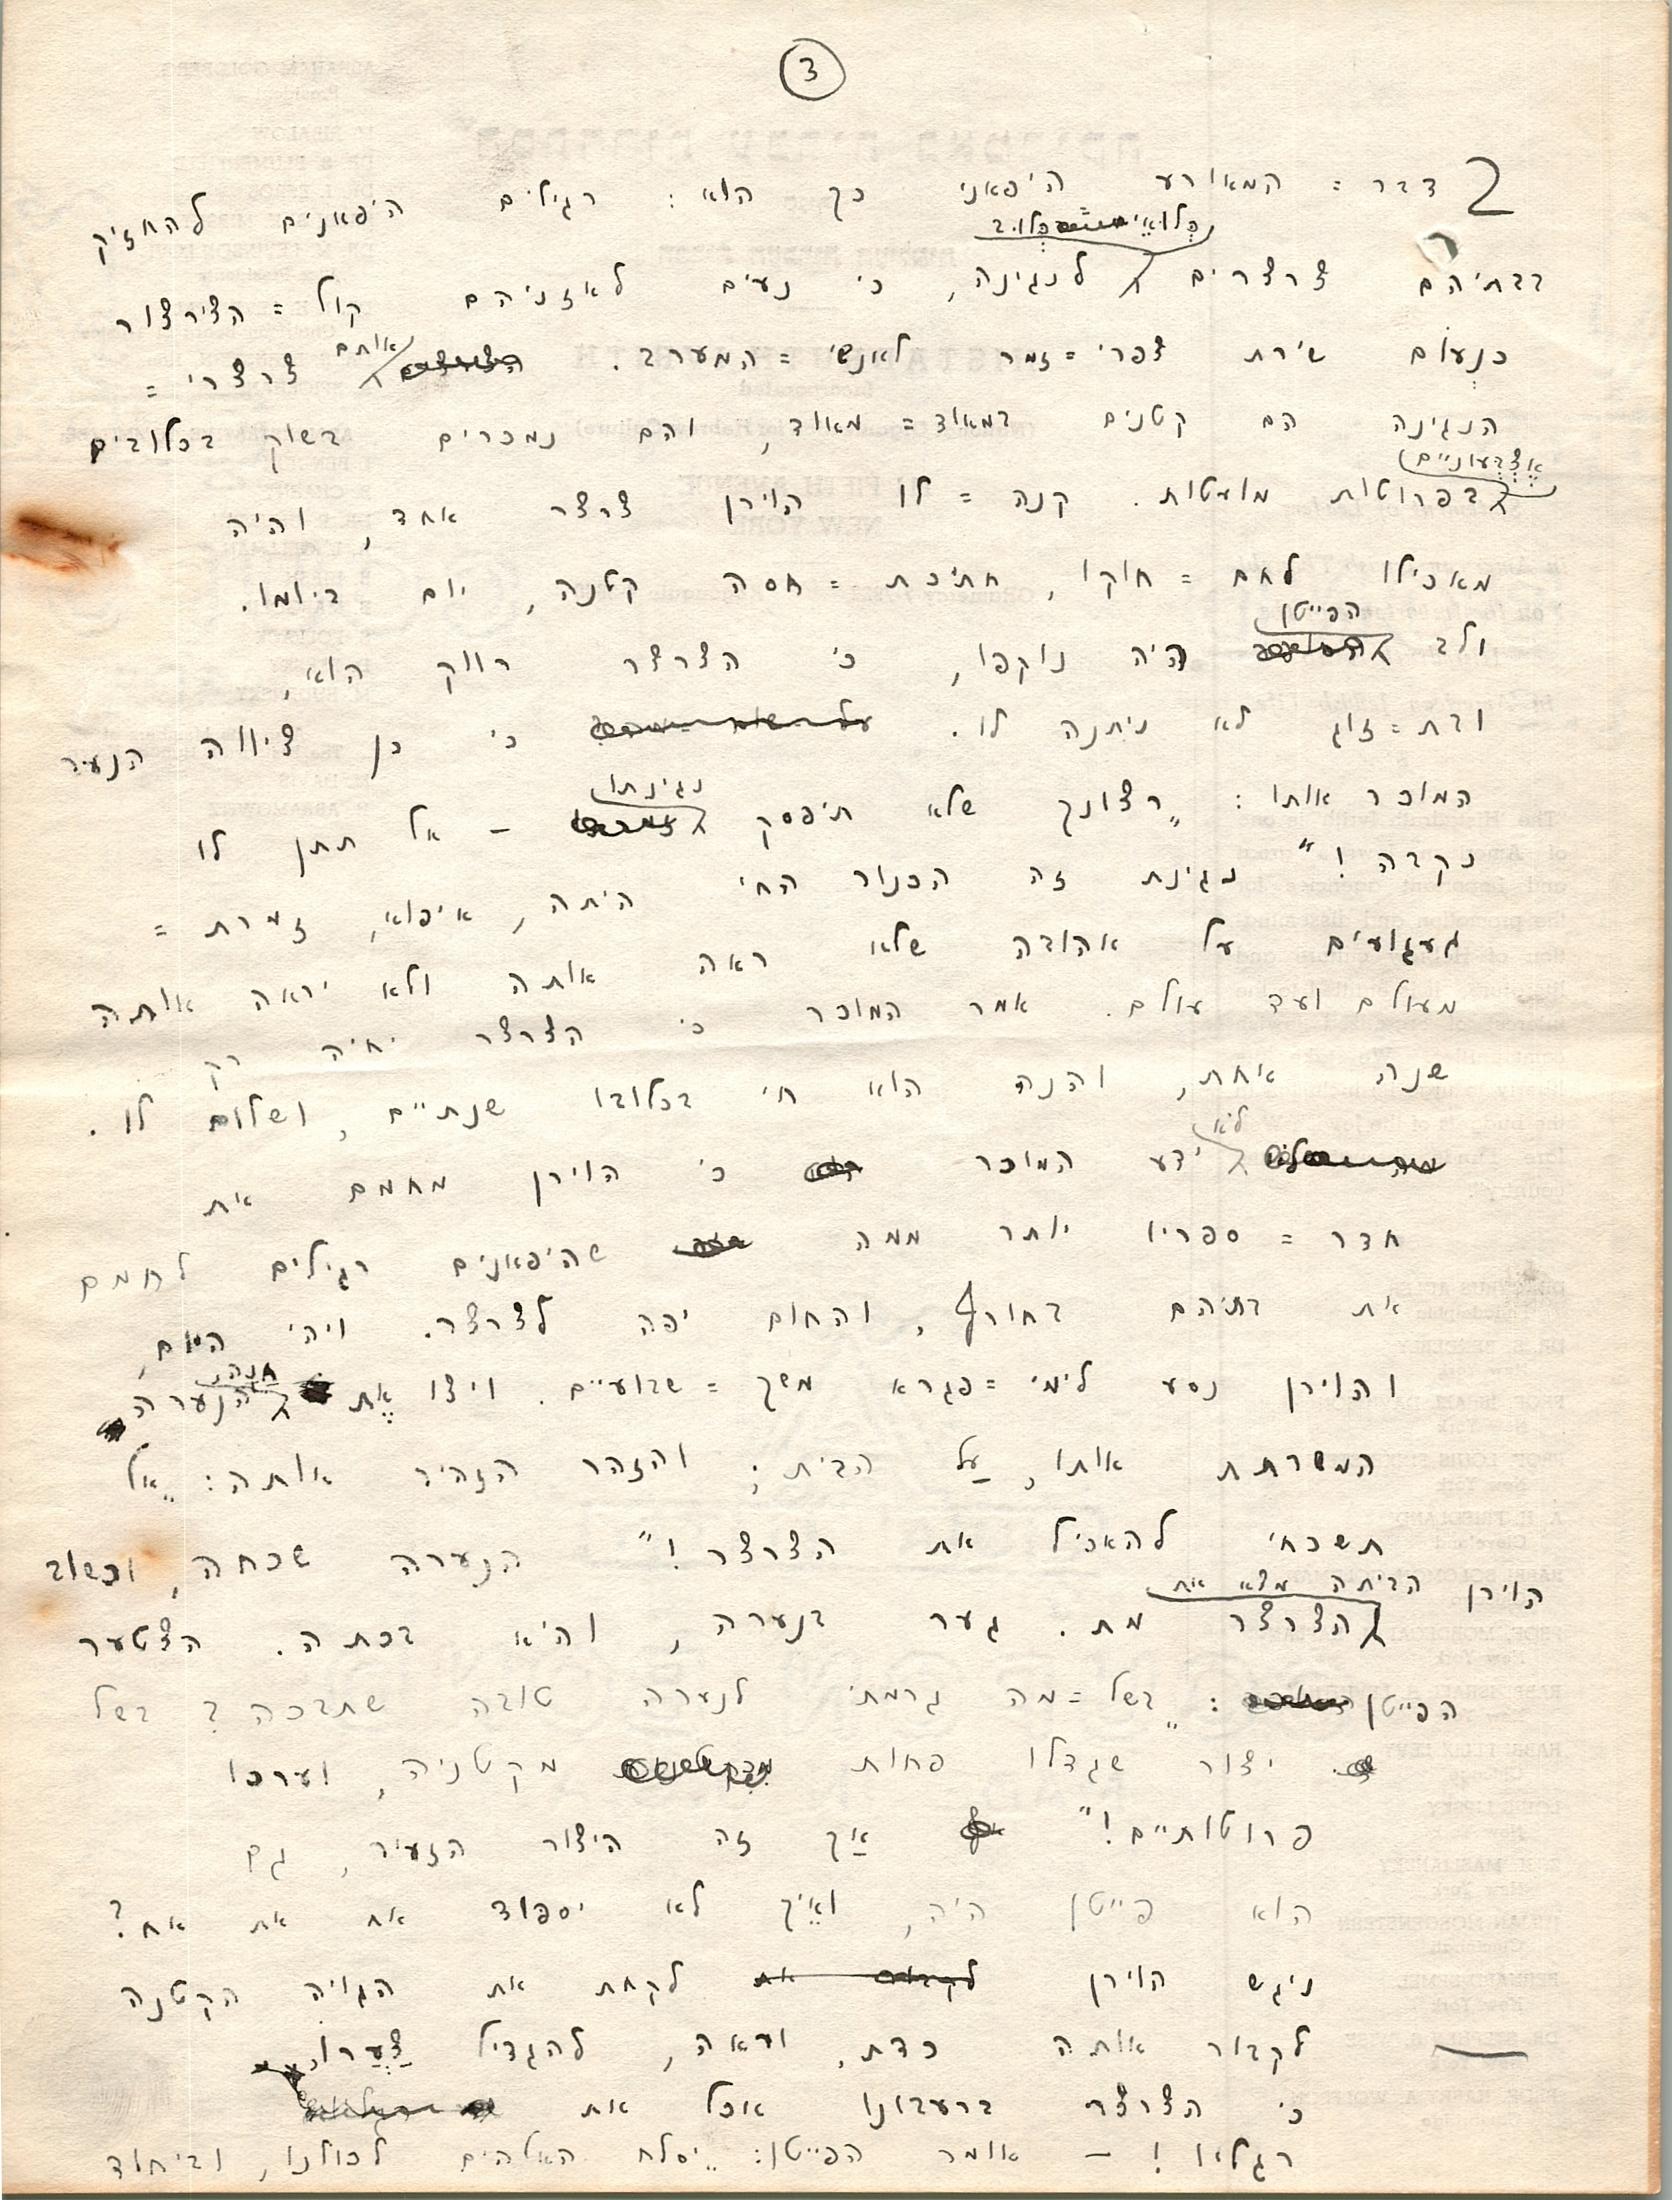 3
דבר = המאורע היפאני כך הוא: רגילים היפאנים להחזיק
כְּלוּאֵי כְּלוּב
בבתיהם צרצרים לנגינה, כי נעים לאזניהם קול = הצירצור
כנְעוֹם שירת צפרי = זמר לאנשי = המערב. אותם צרצרי =
הנגינה הם קטנים במאוד = מאוד, והם נמכרים בשוק בכלובים
אֶצְבְּעוניים
בפרוטות מועטות. קנה = לו הוירן צרצר אחד, והיה
מאכילו לחם = חוקו, חתיכת = חסה קטנה, יום ביומו.
הפייטן
ולב היה נוקפו, כי הצרצר רווק הוא,
ובת = זוג לא ניתנה לו. כי כן ציווה הנער
נגינתו
המוכר אותו: „רצונך שלא תיפסק – אל תתן לו
נקבה!" נגינת זה הכנור החי היתה, איפוא, זמרת =
געגועים על אהובה שלא ראה אותה ולא יראה אותה
מעולם ועד עולם. אמר המוכר כי הצרצר יחיה רק
שנה אחת, והנה הוא חי בכלובו שנתיים, ושלום לו.
לא ידע המוכר כי הוירן מחמם את
חדר = ספריו יותר ממה שהיפאנים רגילים לחמם
את בתיהם בחורף, והחום יפה לצרצר. ויהי היום,
והוירן נסע לימי = פגרא משך = שבועיים. ויצו אֶת חנה, הנערה
המשרתת אותו, עַל הבית; והזהר הזהיר אותה: „אל
תשכחי להאכיל את הצרצר!" הנערה שכחה, וכשוב
הוירן הביתה מצא את
הצרצר מת. גער בנערה, והיא בכתה. הצטער
הפייטן: „בשל = מה גרמתי לנערה טובה שתבכה? בשל
יצור שגדלו פחות מקטניה, וערכו
פרוטותיים!" אַך זה היצור הזעיר, גם
הוא פייטן היה, ואֵיך לא יספוד אח את אח?
ניגש הוירן לקחת את הגויה הקטנה
לקבור אותה כדת, וראה, להגדיל צַעֲרו,
כי הצרצר ברעבונו אכל את
רגליו! – אומר הפייטן: „יסלח האלהים לכולנו, וביחוד